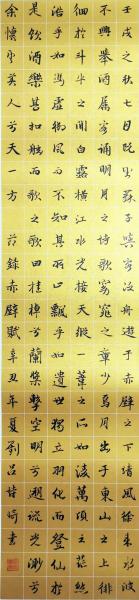 壬戌之秋七月既望蘇子與客泛舟遊于赤壁之下清風徐來水波
不興舉酒屬客誦明月之詩歌窈窕之章少焉月出于東山之上徘
徊于斗牛之間白露橫江水光接天縱一葦之所如凌萬頃之茫然
浩浩乎如馮虛御風而不知其所止飄飄乎如遺世獨立羽化而登仙於
是飲酒樂甚扣舷而歌之歌曰桂棹兮蘭槳擊空明兮溯流光渺渺兮
余懷望美人兮天一方 節錄赤壁賦辛丑年夏劉呂婧琦書